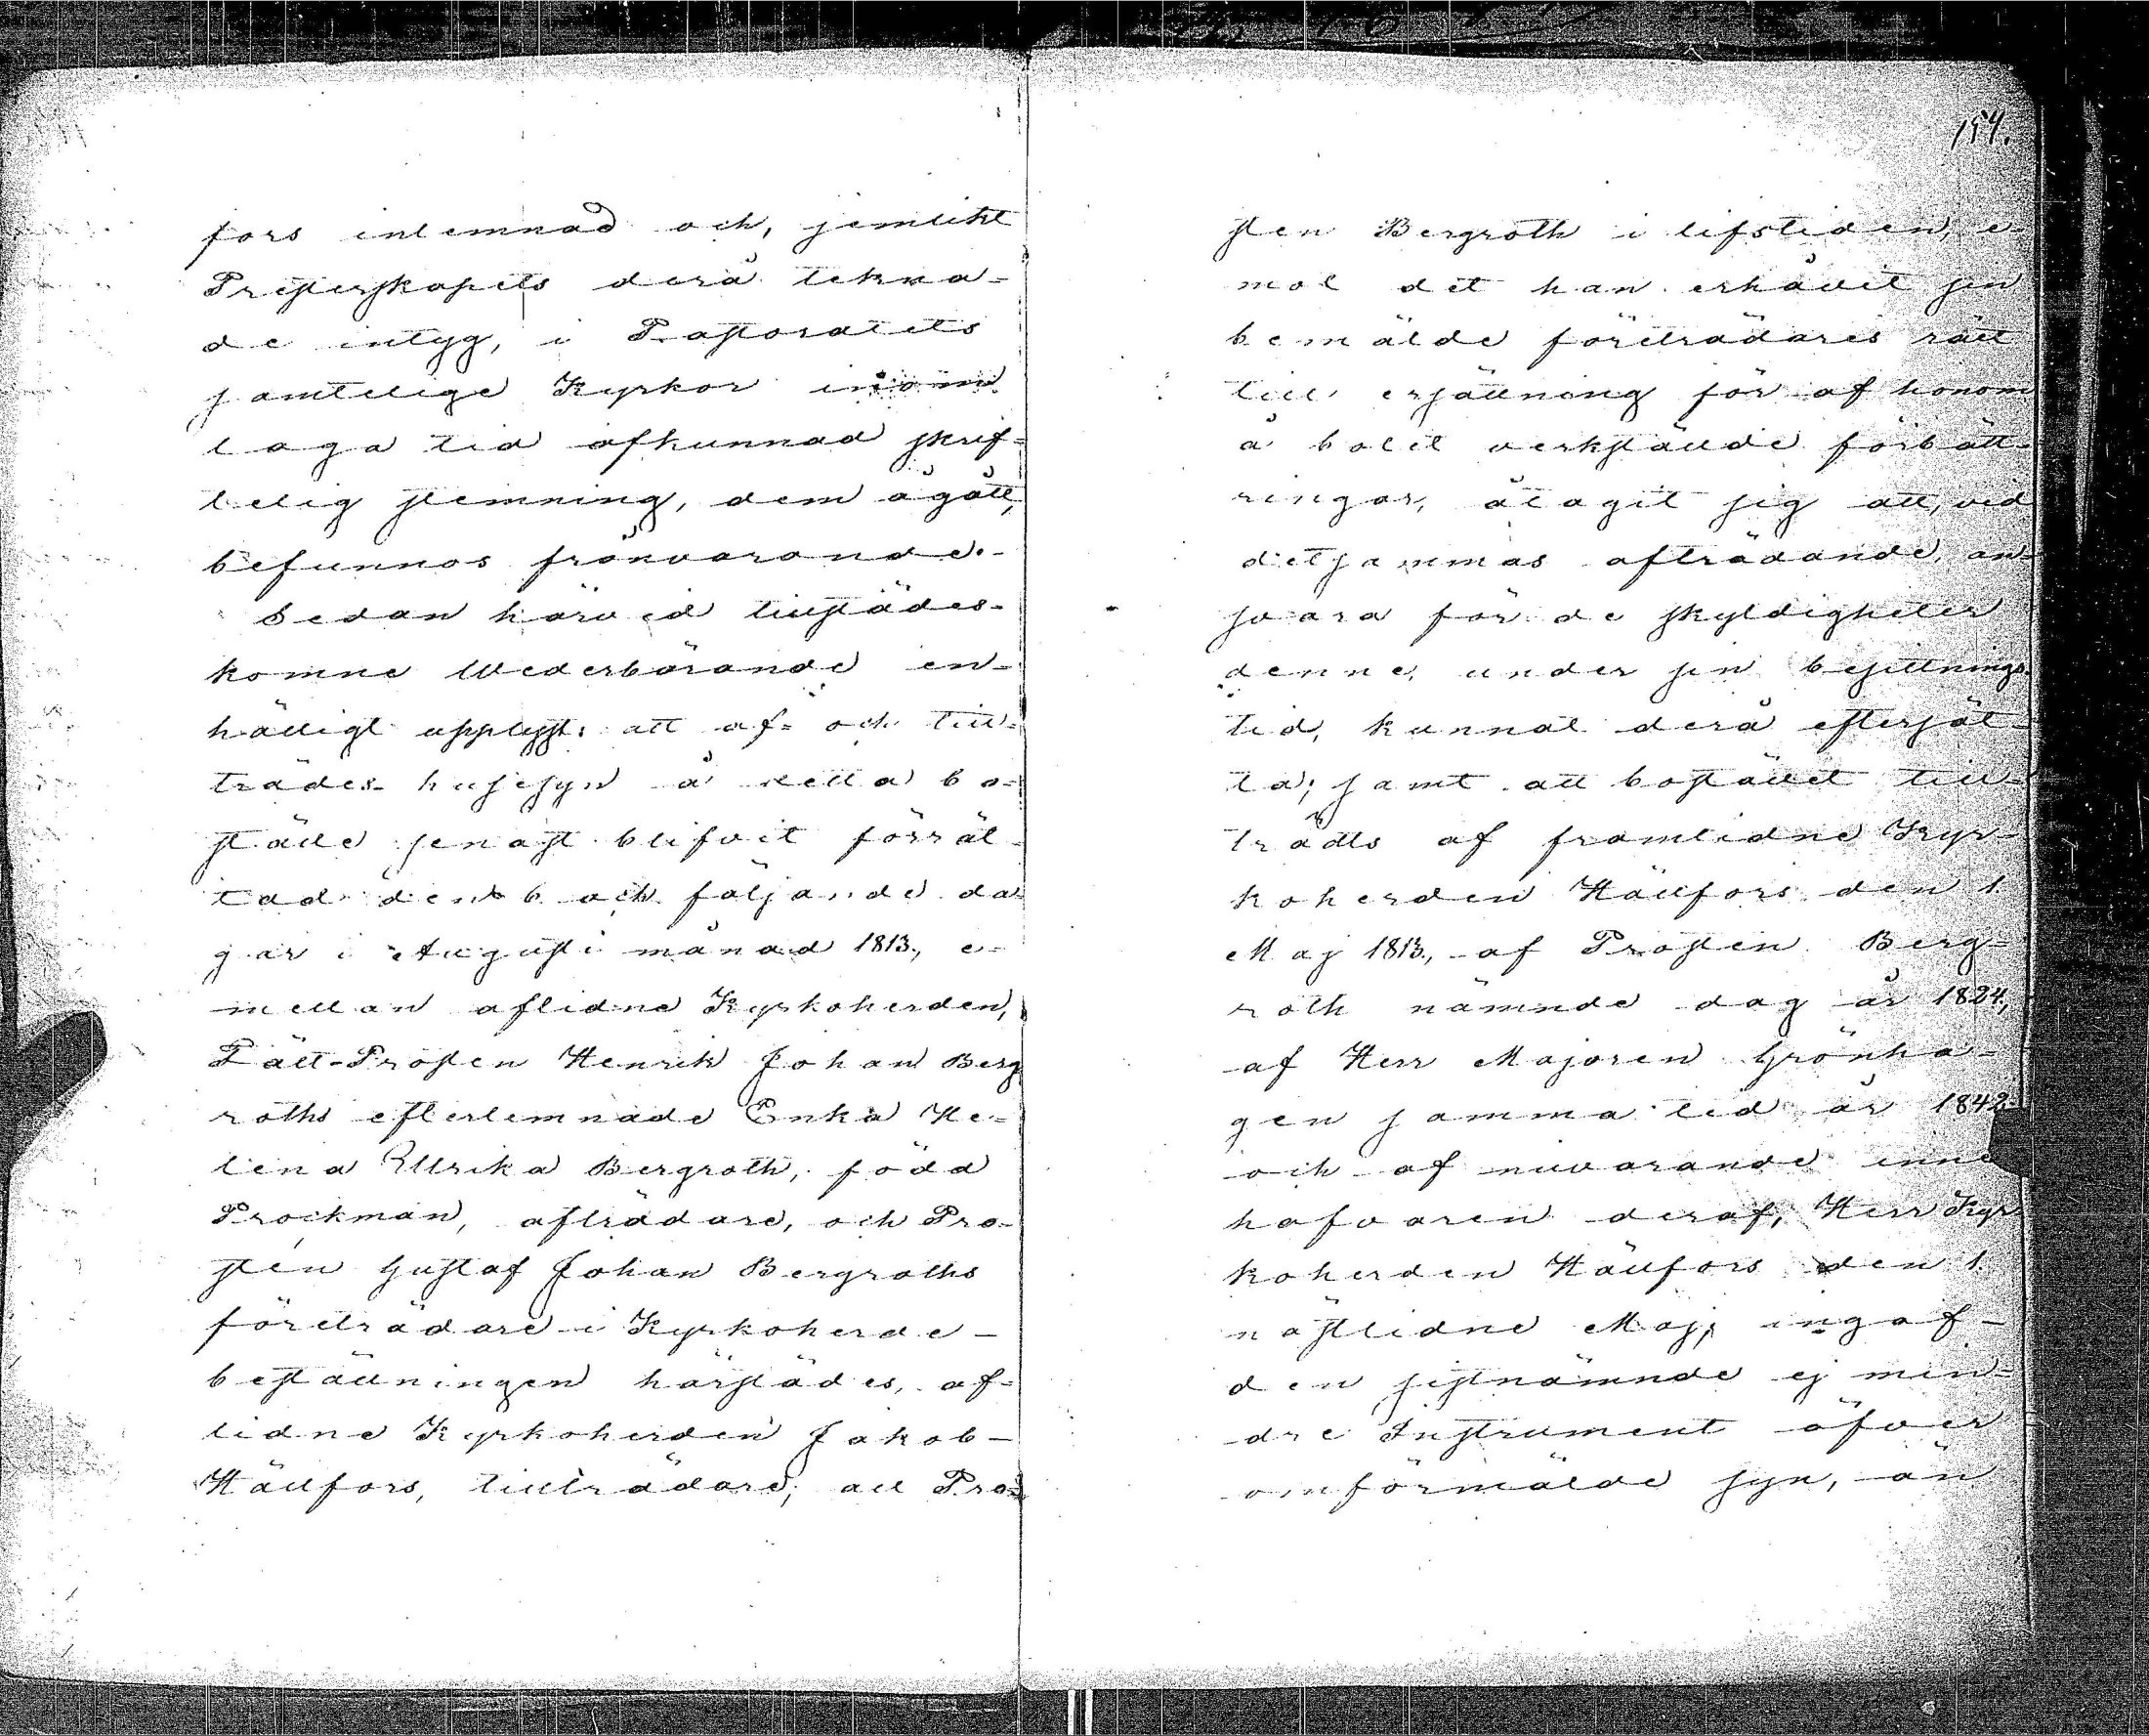 fors inlemnad och, jemlikt
Presterskapets derå tekna-
de intyg, i Pastoratets
samtelige Kyrkor inom
laga tid afkunnad skrif-
telig stemning, dem ågått,
befunnos frånvarande.-
Sedan härvid tillstädes-
komne Wederbörande en-
hälligt upplyst: att af- och till-
trädes- husesyn å detta bo-
ställe senast blifvit förrät-
tad den 6 och följande da-
gar i Augusti månad 1813, e-
mellan aflidne Kyrkoherden,
Fält-Prosten Henrik Johan Berg
roths efterlemnade Enka He-
lena Ullrika Bergroth, född
Prockman, afträdare, och Pro-
sten Gustaf Johan Bergroths
företrädare i Kyrkoherde-
beställningen härstädes, af-
lidne Kyrkoherden Jakob
Hällfors, tillträdare; att Pro-
154.
sten Bergroth i lifstiden, e-
mot det han erhållit sin
bemälde företrädares rätt
till ersättning för af honom
å bolet verkställde förbätt-
ringar, åtagit sig att, vid
detsammas afträdande, an-
svara för de skyldigheter
denne, under sin besittnings-
tid, kunnat derå eftersät-
ta; samt att bostället till-
trädts af framlidne Kyr-
koherden Hällfors den 1.
Maj 1813, af Prosten Berg-
roth nämnde dag år 1824,
af Herr Majoren Grönha-
gen samma tid år 1842
och af nuvarande inne
hafvaren deraf, Herr Kyr
koherden Hällfors den 1.
nästlidne Maj; ingaf
den sistnämnde ej min-
dre Instrument öfver
omförmälde syn, än